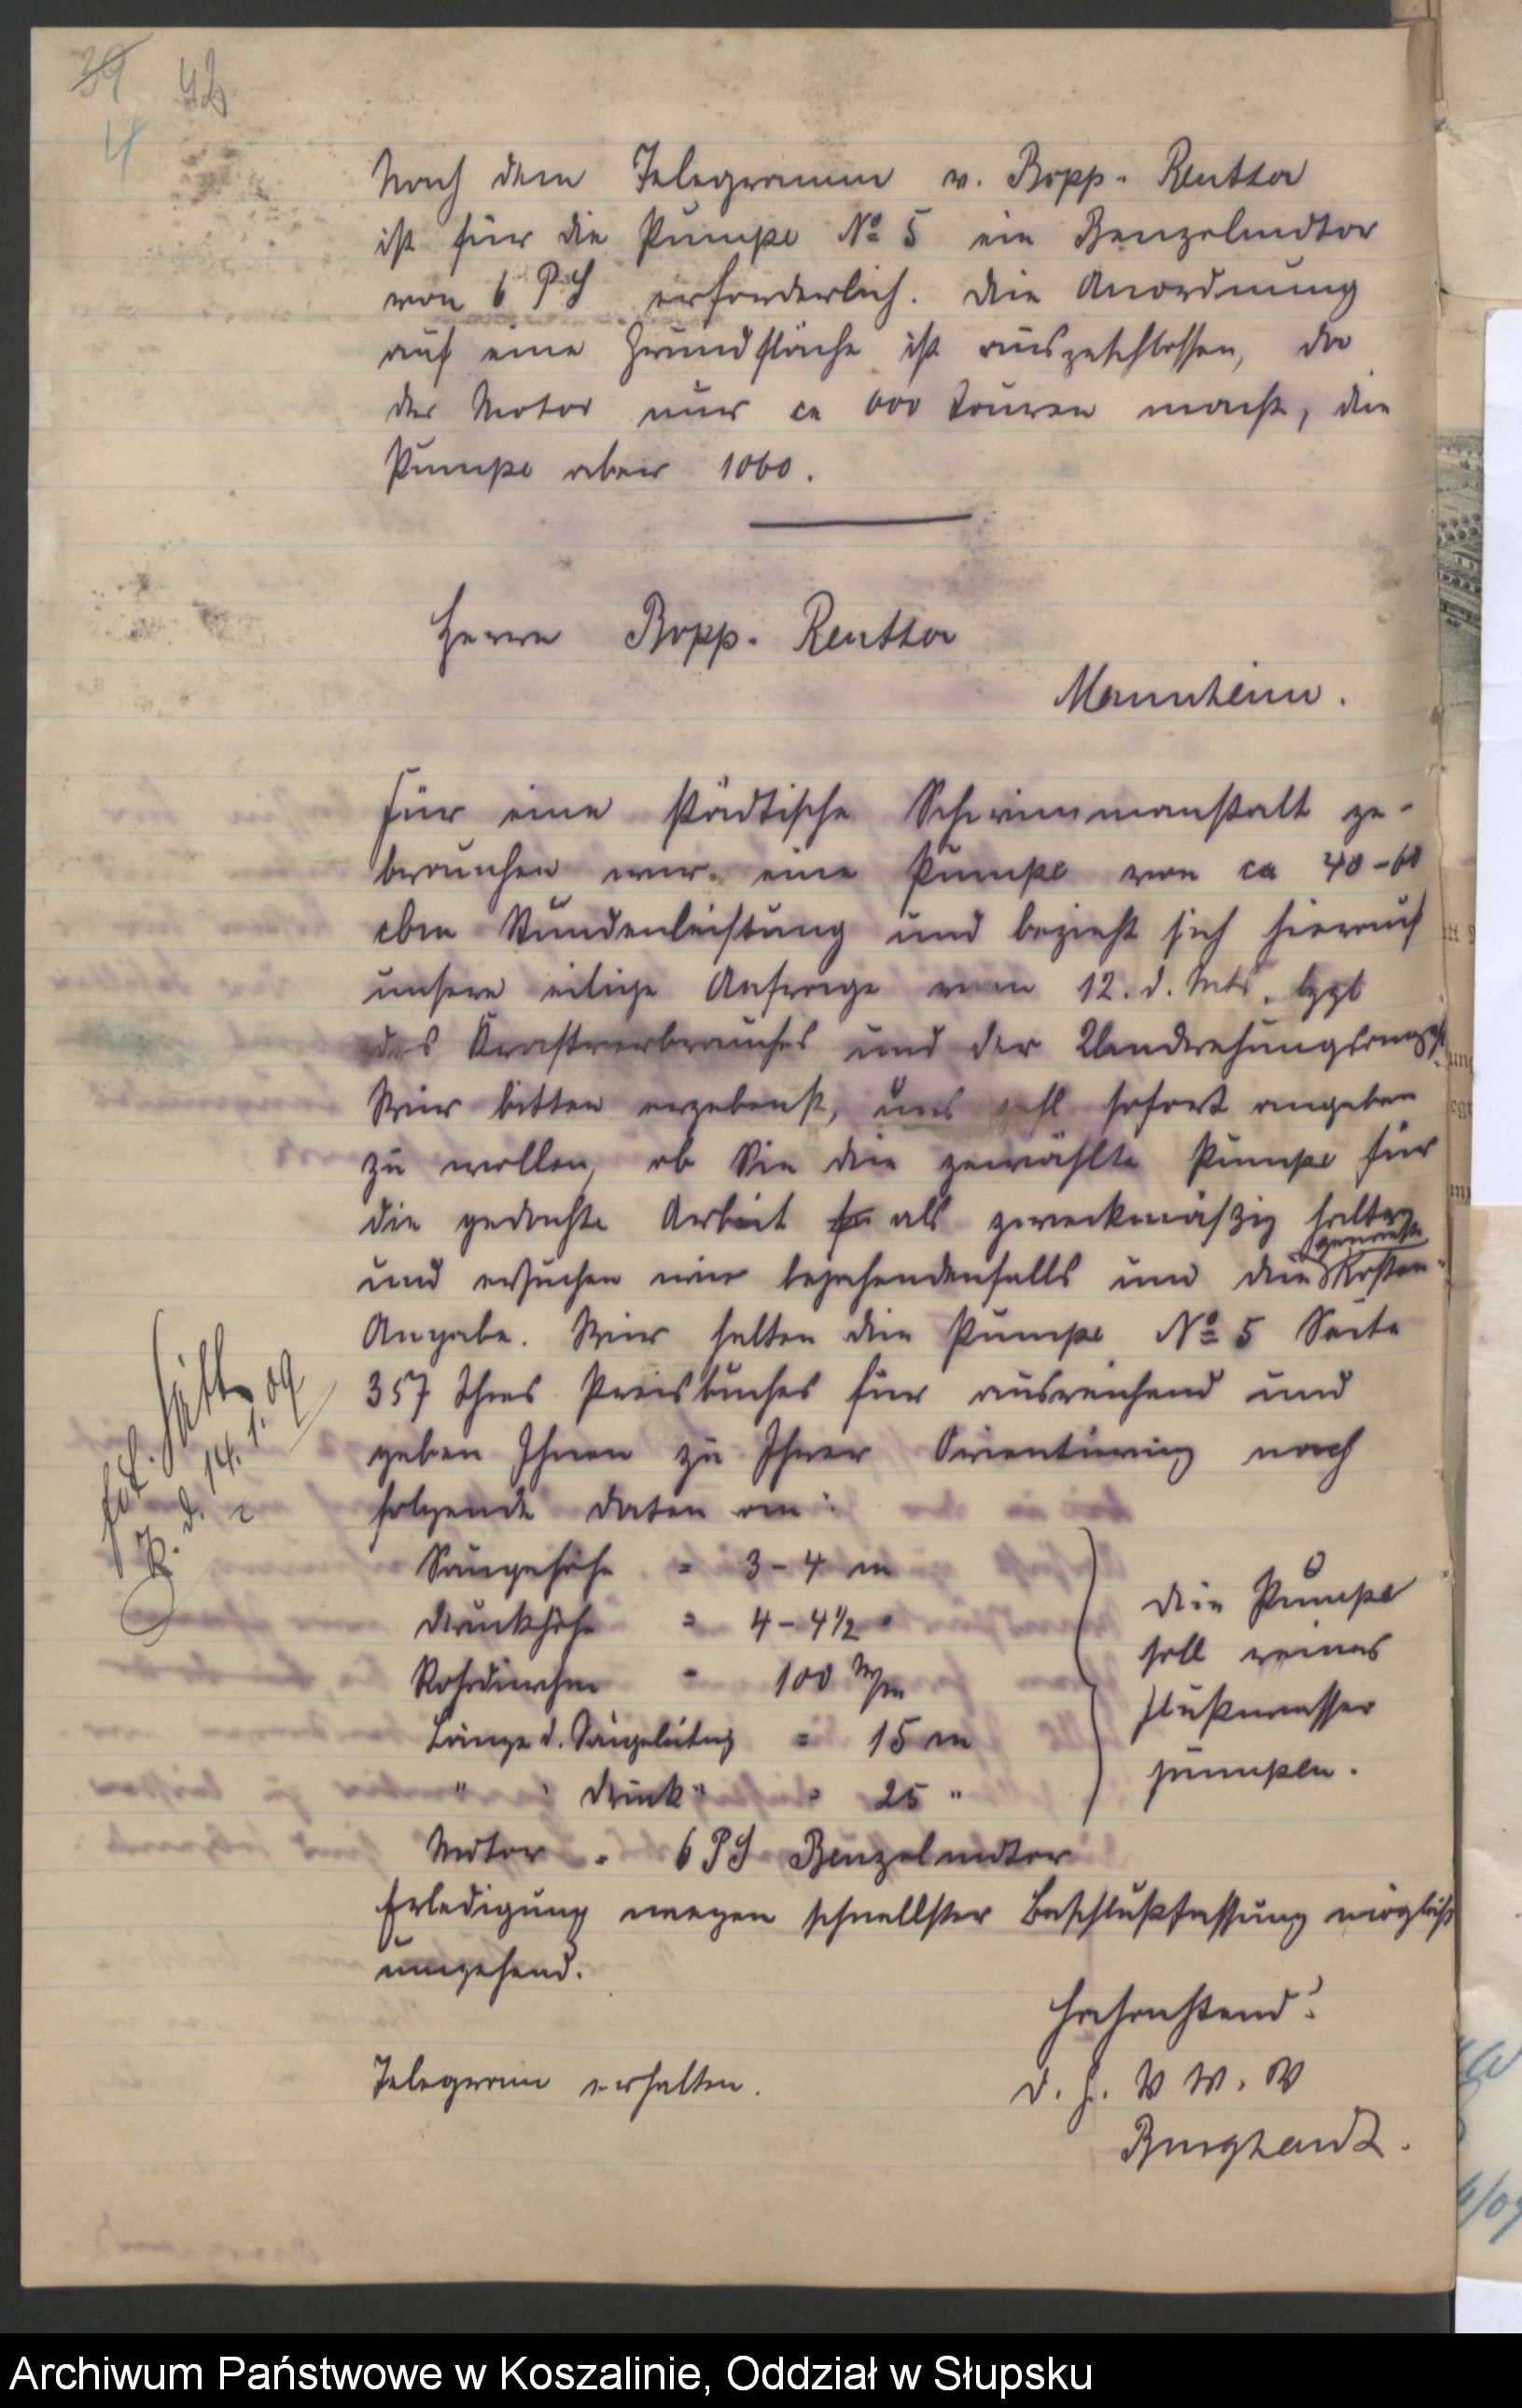 39 42
4
Nach dem Telegramm v. Bopp- Reuther
ist für die Pumpe No 5 ein Benzolmotor
von 6 PS erforderlich. Die Anordnung
auf eine Grundfläche ist ausgeschlossen, da
der Motor nur ca 600 Touren macht, die
Pumpe aber 1060.
Herren Bopp- Reuther
Mannheim.
Für eine städtische Schwimmanstalt ge-
brauchen wir eine Pumpe von ca 40-60
cbm Stundenleistung und bezieht sich hierauf
unsere eilige Anfrage vom 12. d. Mts. bzgl
des Kraftverbrauches und der Umdrehungsanzahl
Wir bitten ergebenst, uns gefl sofort angeben
zu wollen, ob Sie die gewählte Pumpe für
die gedachte Arbeit als zweckmäßig halten
und ersuchen wir bejahendenfalls um die genaue Kosten-
Angabe. Wir halten die Pumpe No 5 Seite
357 Ihres Preisbuches für ausreichend und
geben Ihnen zu Ihrer Orientierung noch
folgende Daten an:
Saugehöhe = 3-4 m
Druckhöhe = 4-4 1/2 "
Rohrdurchm = 100 m/m
Länge d. Saugeleitung = 15 m
" " Druck " = 25 "
Die Pumpe
soll reines
Flußwasser
pumpen.
Motor = 6 PS Benzolmotor
Erledigung wegen schnellster Beschlußfassung möglichst
umgehend.
Hochachtend!
D. H. V W. W
Burghardt.
Telegramm erhalten.
14. 1. 09
Archiwum Państwowe w Koszalinie, Oddział w Słupsku